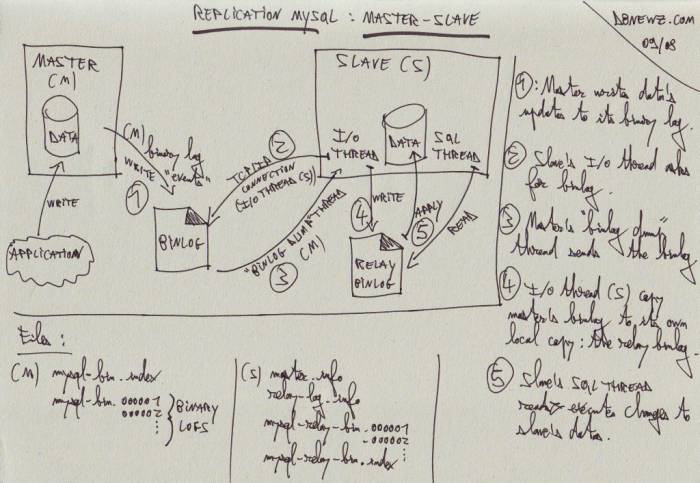 REPLICATION MYSQL : MASTER-SLAVE
DBNEWZ.COM
09/08
MASTER
(M)
DATA
WRITE
APPLICATION
(M)
binary log
WRITE "events"
1
BINLOG
SLAVE (S)
I/O
THREAD
DATA
SQL
THREAD
2
TCP/IP
CONNECTION
(I/O THREAD (S))
"BINLOG DUMP" THREAD
(M)
3
4
WRITE
5
APPLY
READ
RELAY
BINLOG
1: Master writes data's
updates to its binary log.
2 Slave's I/O thread asks
for binlog.
3 Master's "binlog dump"
thread sends the binlog
4 I/O thread (S) copy
master's binlog to its own
local copy: the relay binlog.
5 Slave's SQL THREAD
reads execute changes to
slave's datas.
Files :
(M) mysql-bin.index
mysql-bin.000001
000002
BINARY
LOGS
(S) master.info
relay-log.info
mysql-relay-bin.000001
-000002
mysql-relay-bin.index